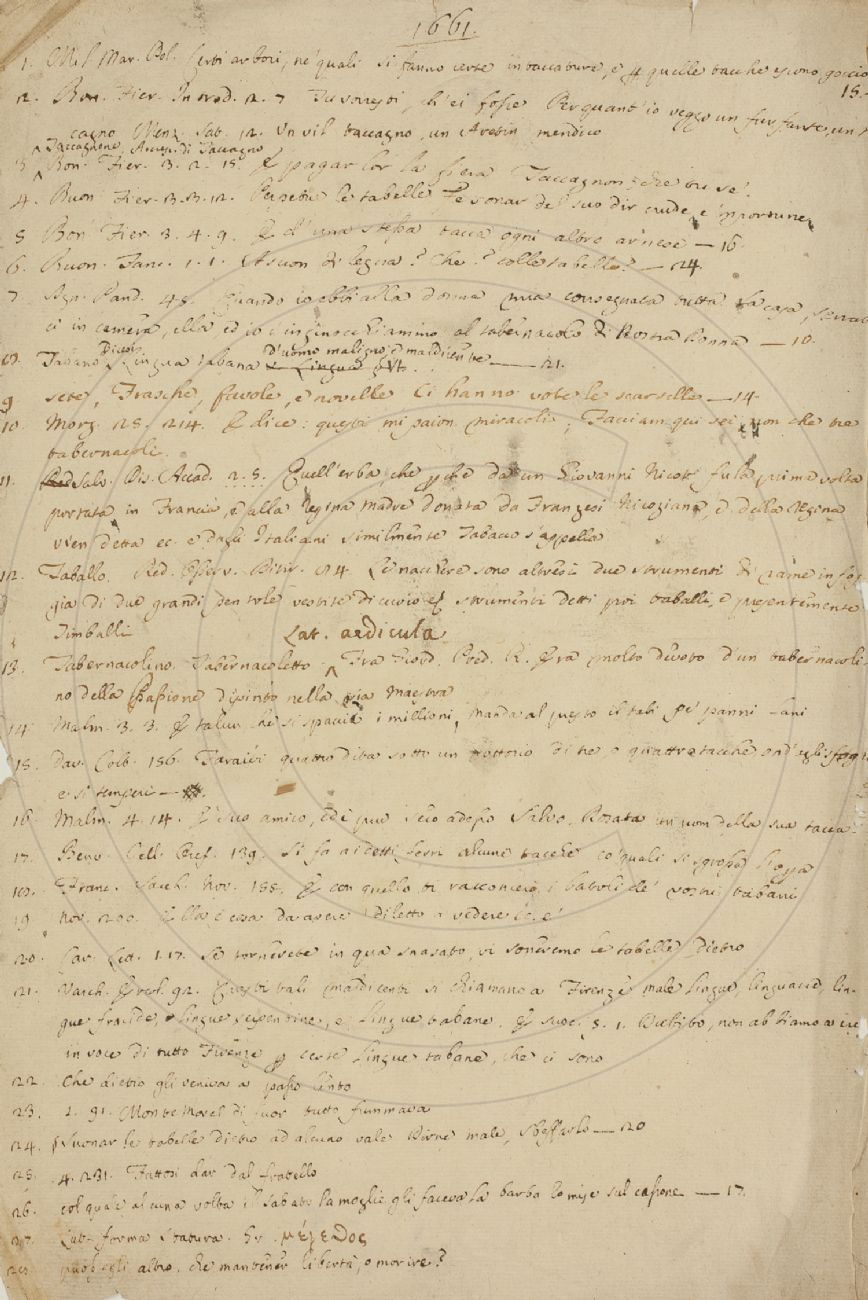 1661.
1. Mil. Mar. Pol. Certi arbori, ne' quali si fanno certe intaccature, e p quelle tacche escono gocciole
15.
2. Bon. Fier. Introd. 2. 7 Tu vorresti, ch'ei fosse Per quant'io veggo un furfante, un
cagno Menz. Sat. 12. Un vil taccagno, un Aretin mendico
Taccagnone, Accr. di Taccagno
3 Bon. Fier. 3. 2. 15. E pagar lor la fiera Taccagnon, che tu se'.
4. Buon. Fier. 3. 3. 12. Penetra le tabelle Fe sonar del suo dir crude, e importune
5 Bon. Fier. 3. 4. 9. E d'una stessa tacca ogni altro arnese — 16.
6. Buon. Tanc. 1. 1. A suon di legna? Che? colle tabelle? — 24.
7 Agn. Pand. 45. Quando io ebbi alla donna mia consegnata tutta la casa, serra
ci in camera, ella ed io c'inginocchiammo al tabernacolo di Nostra Donna — 10.
8. Tabano Dicesi Lingua tabana D'uomo maligno, e maldicente — 21.
9 sete, Frasche, favole, e novelle Ci hanno vote le scarselle — 14
10 Morg. 25. 214. E dice: questi mi paion miracoli; Facciam qui sei, non che tre
tabernacoli.
11. Salv. Dis. Accad. 2. 5. Quell'erba, che p che da un Giovanni Nicott fu la prima volta
portata in Francia, e alla Regina madre donata da Franzesi Nicoziana, e della Regina
vien detta ec. e dagli Italiani similmente Tabacco s'appella
12. Taballo. Red. Le nacchere sono altresì due strumenti di rame in fog
gia di due grandi pentole vestite di cuoio strumenti detti poi taballi, e presentemente
Timballi Lat. aedicula
13. Tabernacolino. Tabernacoletto Fra Giord. Pred. R. Era molto divoto d'un tabernacoli
no della Passione dipinto nella via maestra
14 Malm. 3. 3. E talun che si spaccia i millioni, Manda al presto il tabì pe' panni lani
15. Dav. Colt. 156. quattro dita sotto un di tre, o quattro tacche ond'egli sfoghi
e si temperi —
16. Malm. 4. 14. E' suo amico, ed è pur seco adesso Salvo Rosata un uom della sua tacca.
17. Benv. Cell. Oref. 139. Si fa a i detti ferri alcune tacche co' quali si
18. Franc. Sacch. nov. 155. E con quello ti racconcerò, i batoli de' vostri tabani
19. nov. 200. Ella è cosa da avere diletto a vedere
20. Car. Lett. 1. 17. Se tornerete in qua snasato, vi soneremo le tabelle dietro
21. Varch. Ercol. 92. Questi tali maldicenti si chiamano a Firenze male lingue, linguacce, lin-
gue fracide, lingue serpentine, e lingue tabane. E Suoc. 5. 1. non abbiamo a ire
in voce di tutto Firenze p certe lingue tabane, che ci sono
22. Che dietro gli veniva a passo lento
23. 1. 91. Monte Morel di fuor tutto fiummava
24. Suonar le tabelle dietro ad alcuno vale Dirne male, Sbeffarlo — 20
25. 4. 231. Fattosi dar dal fratello
26. col quale alcuna volta il sabato la moglie gli faceva la barba lo mise sul cassone — 17.
27. Lat. forma statura. Gr. μέγεθος
28. può egli altro, che mantener libertà, o morire?